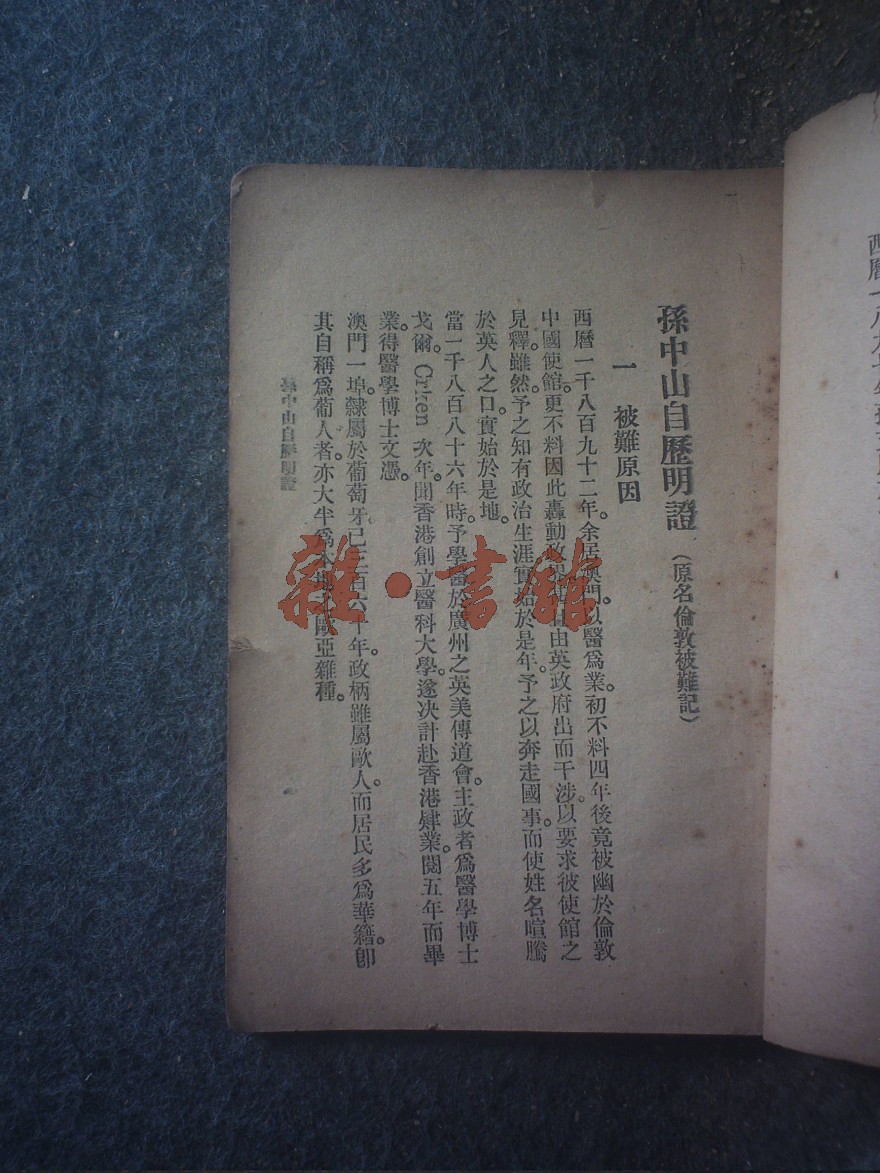 孫中山自歷明證（原名倫敦被難記）
一 被難原因
西曆一千八百九十二年。余居澳門。以醫爲業。初不料四年後竟被幽於倫敦
中國使館。更不料因此轟動政界。由英政府出而干涉。以要求彼使館之
見釋。雖然。予之知有政治生涯。實始於是年。予之以奔走國事。而使姓名喧騰
於英人之口。實始於是地。
當一千八百八十六年時。予學醫於廣州之英美傳道會。主政者爲醫學博士
戈爾。Crken 次年。聞香港創立醫科大學。遂决計赴香港肄業。閱五年而畢
業。得醫學博士文憑。
澳門一埠。隸屬於葡萄牙。已三百六十年。政柄雖屬歐人。而居民多爲華籍。卽
其自稱爲葡人者。亦大半爲本地歐亞雜種。
孫中山自歷明證
一
西曆一八九
雜·書館